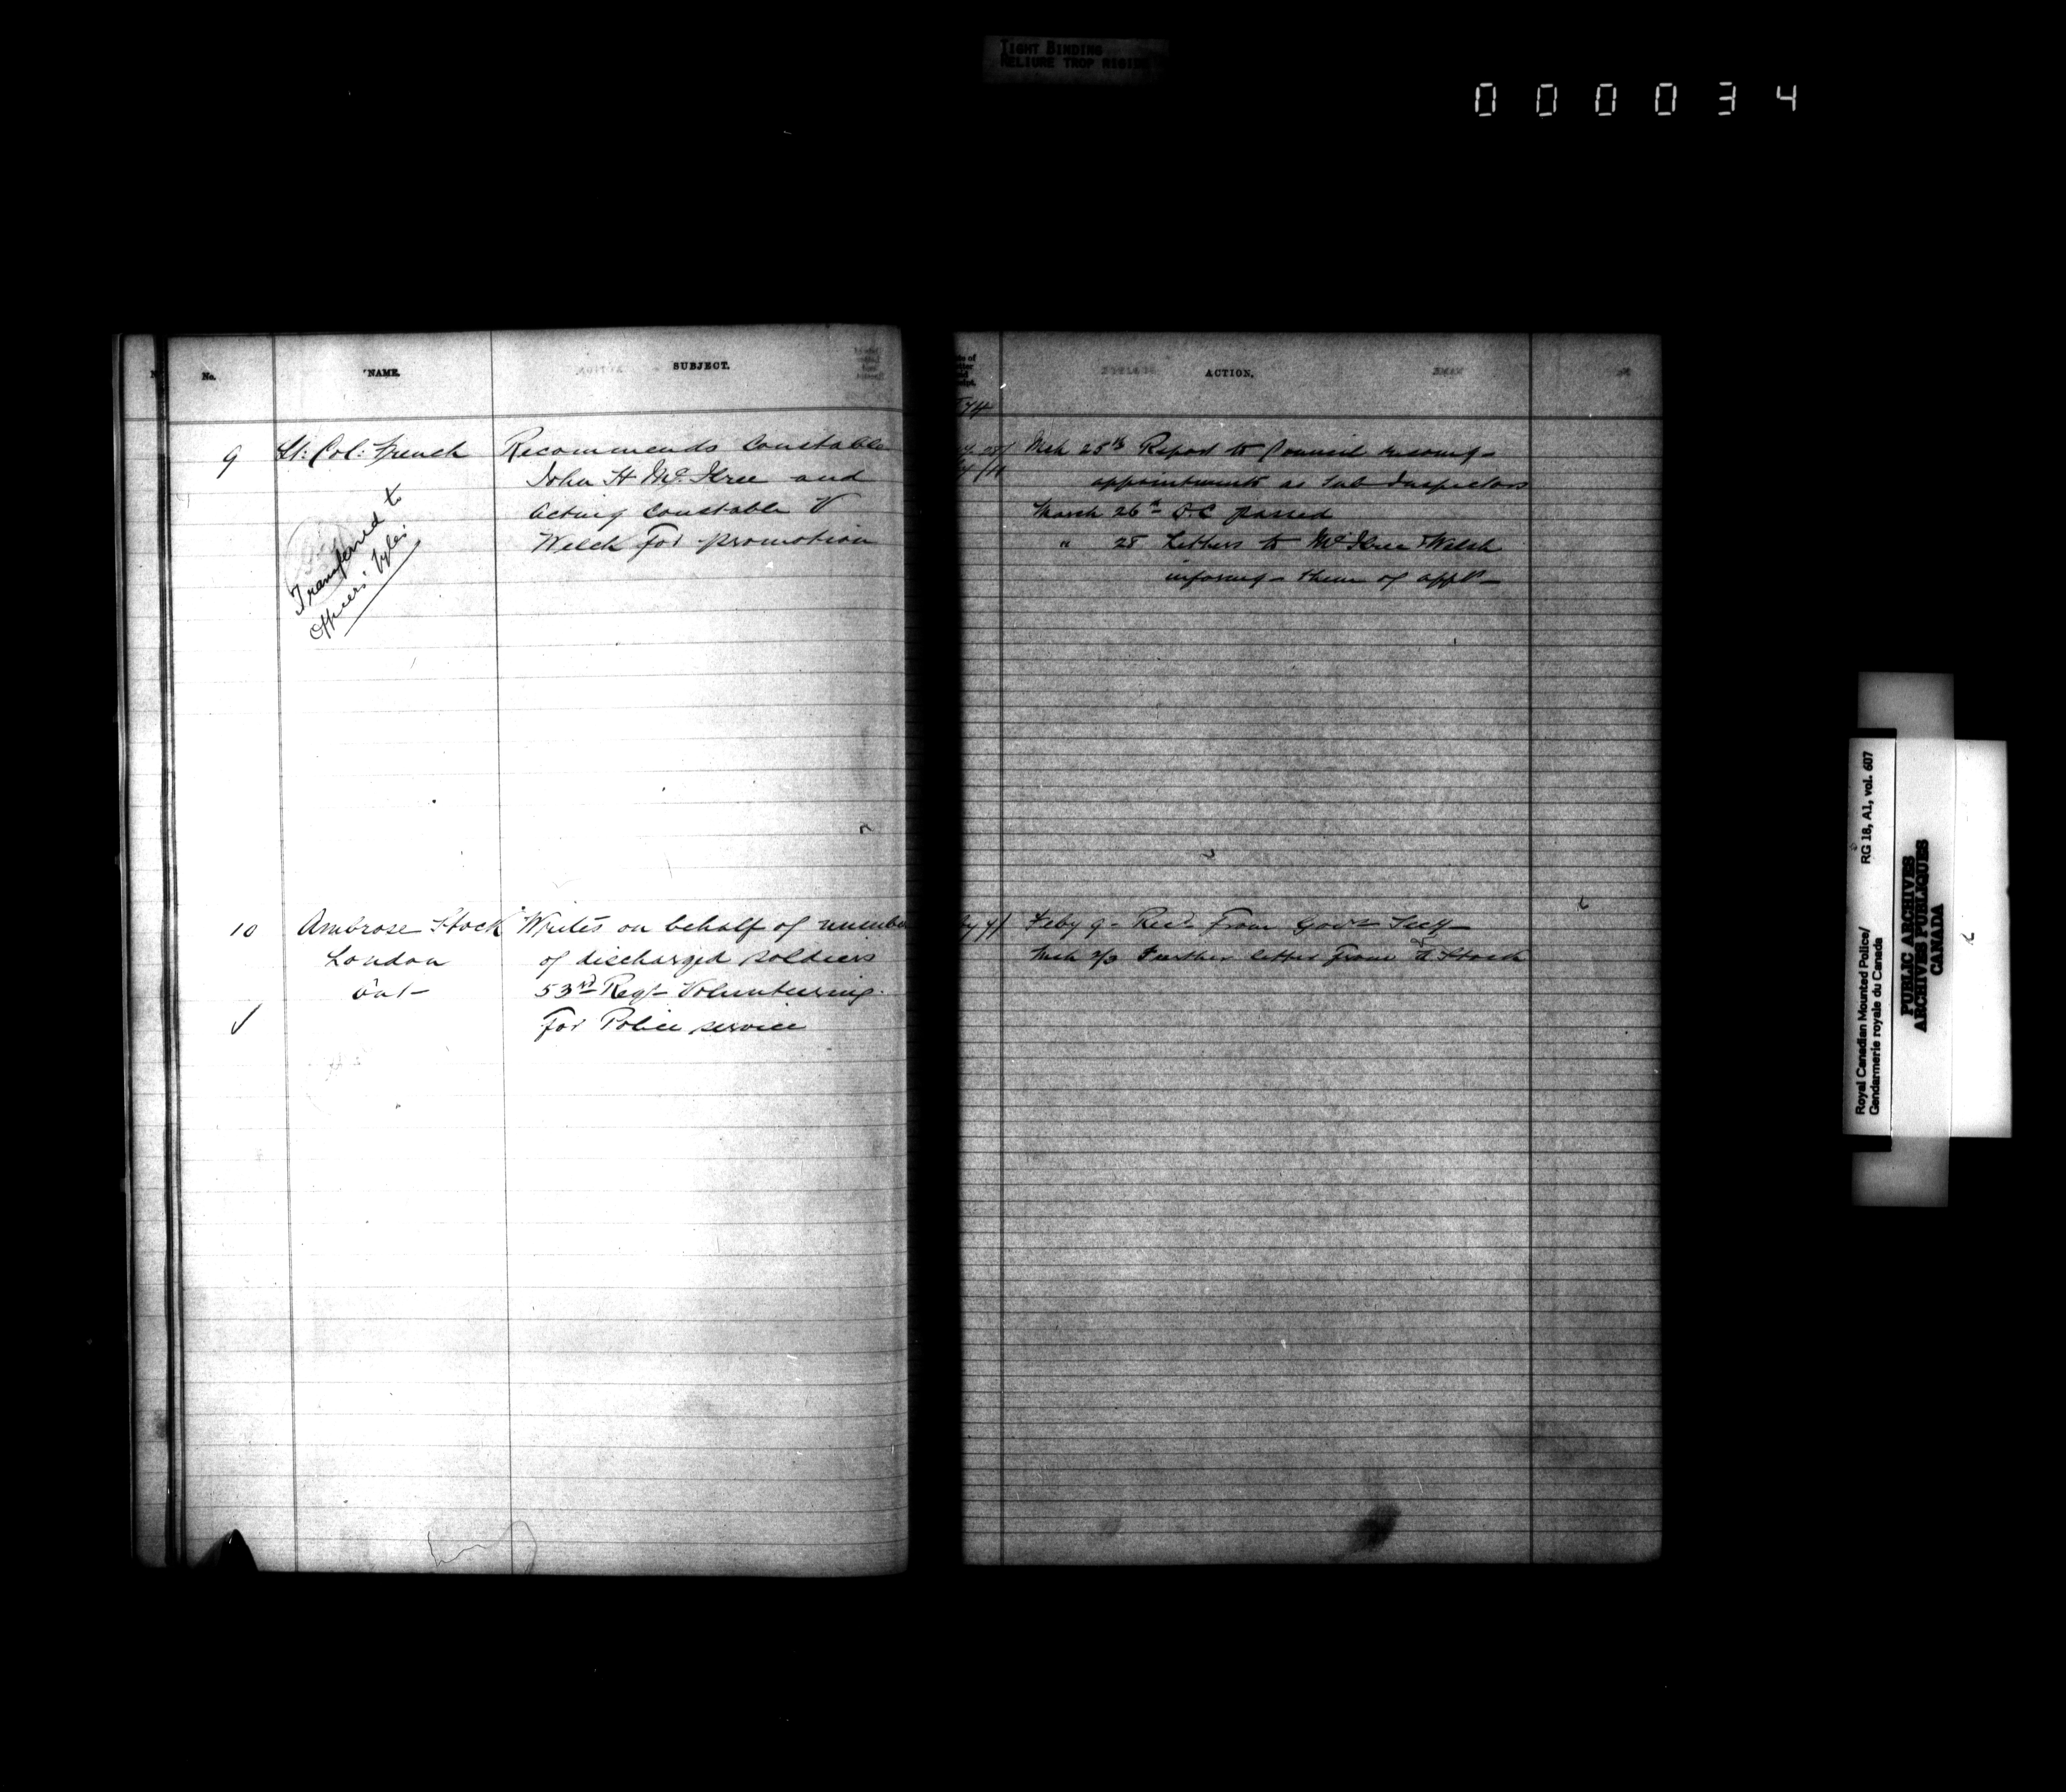 TIGHT BINDING
RELIURE TROP RIGIDE
000034
No.
NAME.
SUBJECT.
9
Lt: Col: French
Recommends Constable
John H McIlree and
Acting Constable V
Welch for promotion
Transferred to
Officers' Files
10
Ambrose Stock
London
Ont
Writes on behalf of number
of discharged soldiers
53rd Regt Volunteering
for Police service
ACTION.
74
Mch 25th Report to Council recomg
appointments as Sub Inspectors
March 26th O.C passed
" 28 Letters to McIlree & Welch
informg them of appt
Feby 9 Recd from Govr
Mch Further letter from Stock
Royal Canadian Mounted Police/
Gendarmerie royale du Canada
RG 18, A1, vol. 607
PUBLIC ARCHIVES
ARCHIVES PUBLIQUES
CANADA